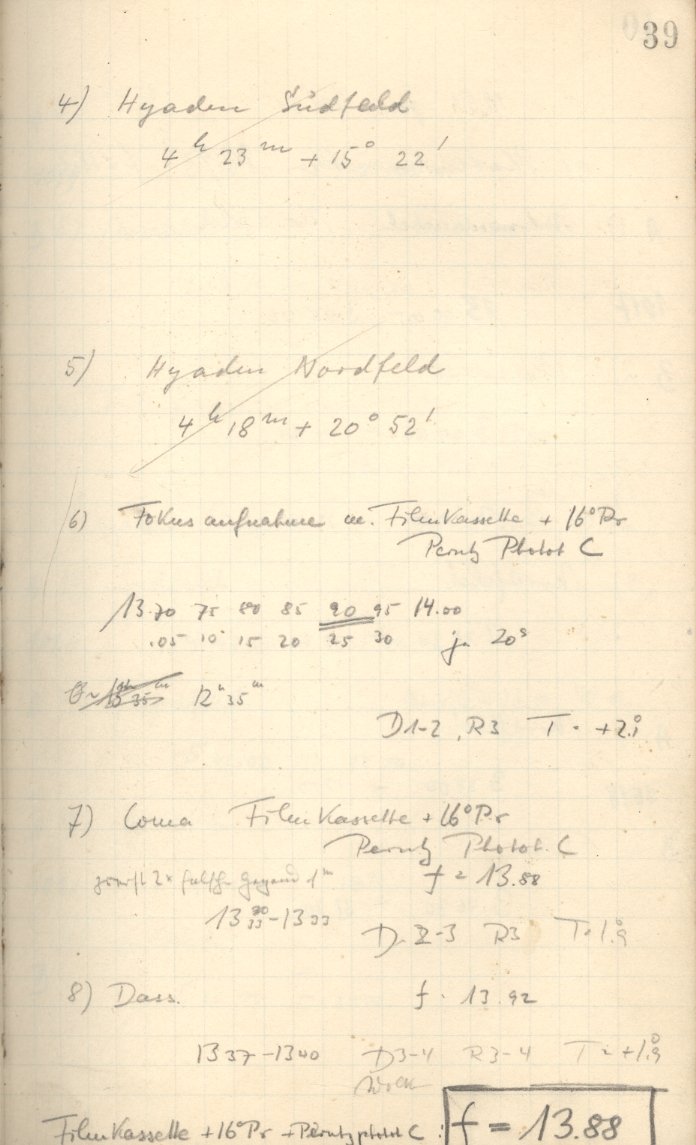 39
4) Hyaden Südfeld
4h 23m + 15° 22'
5) Hyaden Nordfeld
4h 18m + 20° 52'
6) Fokusaufnahme m. FilmKassette + 16° Pr
Perutz Photot C
13.70 75 80 85 90 95 14.00
.05 10 15 20 25 30 je 20s
12h 35m
D1-2, R3 T = +2.1
7) Coma FilmKassette + 16° Pr
Perutz Photot. C
zuerst 2x falsche Gegend 1m f = 13.88
13 33 D. 2-3 R3 T = 1.9
8) Dass. f = 13.92
13 37 - 13 40 D3-4 R3-4 T = +1.9
Wolk
FilmKassette + 16° Pr + Perutz photot C: f = 13.88